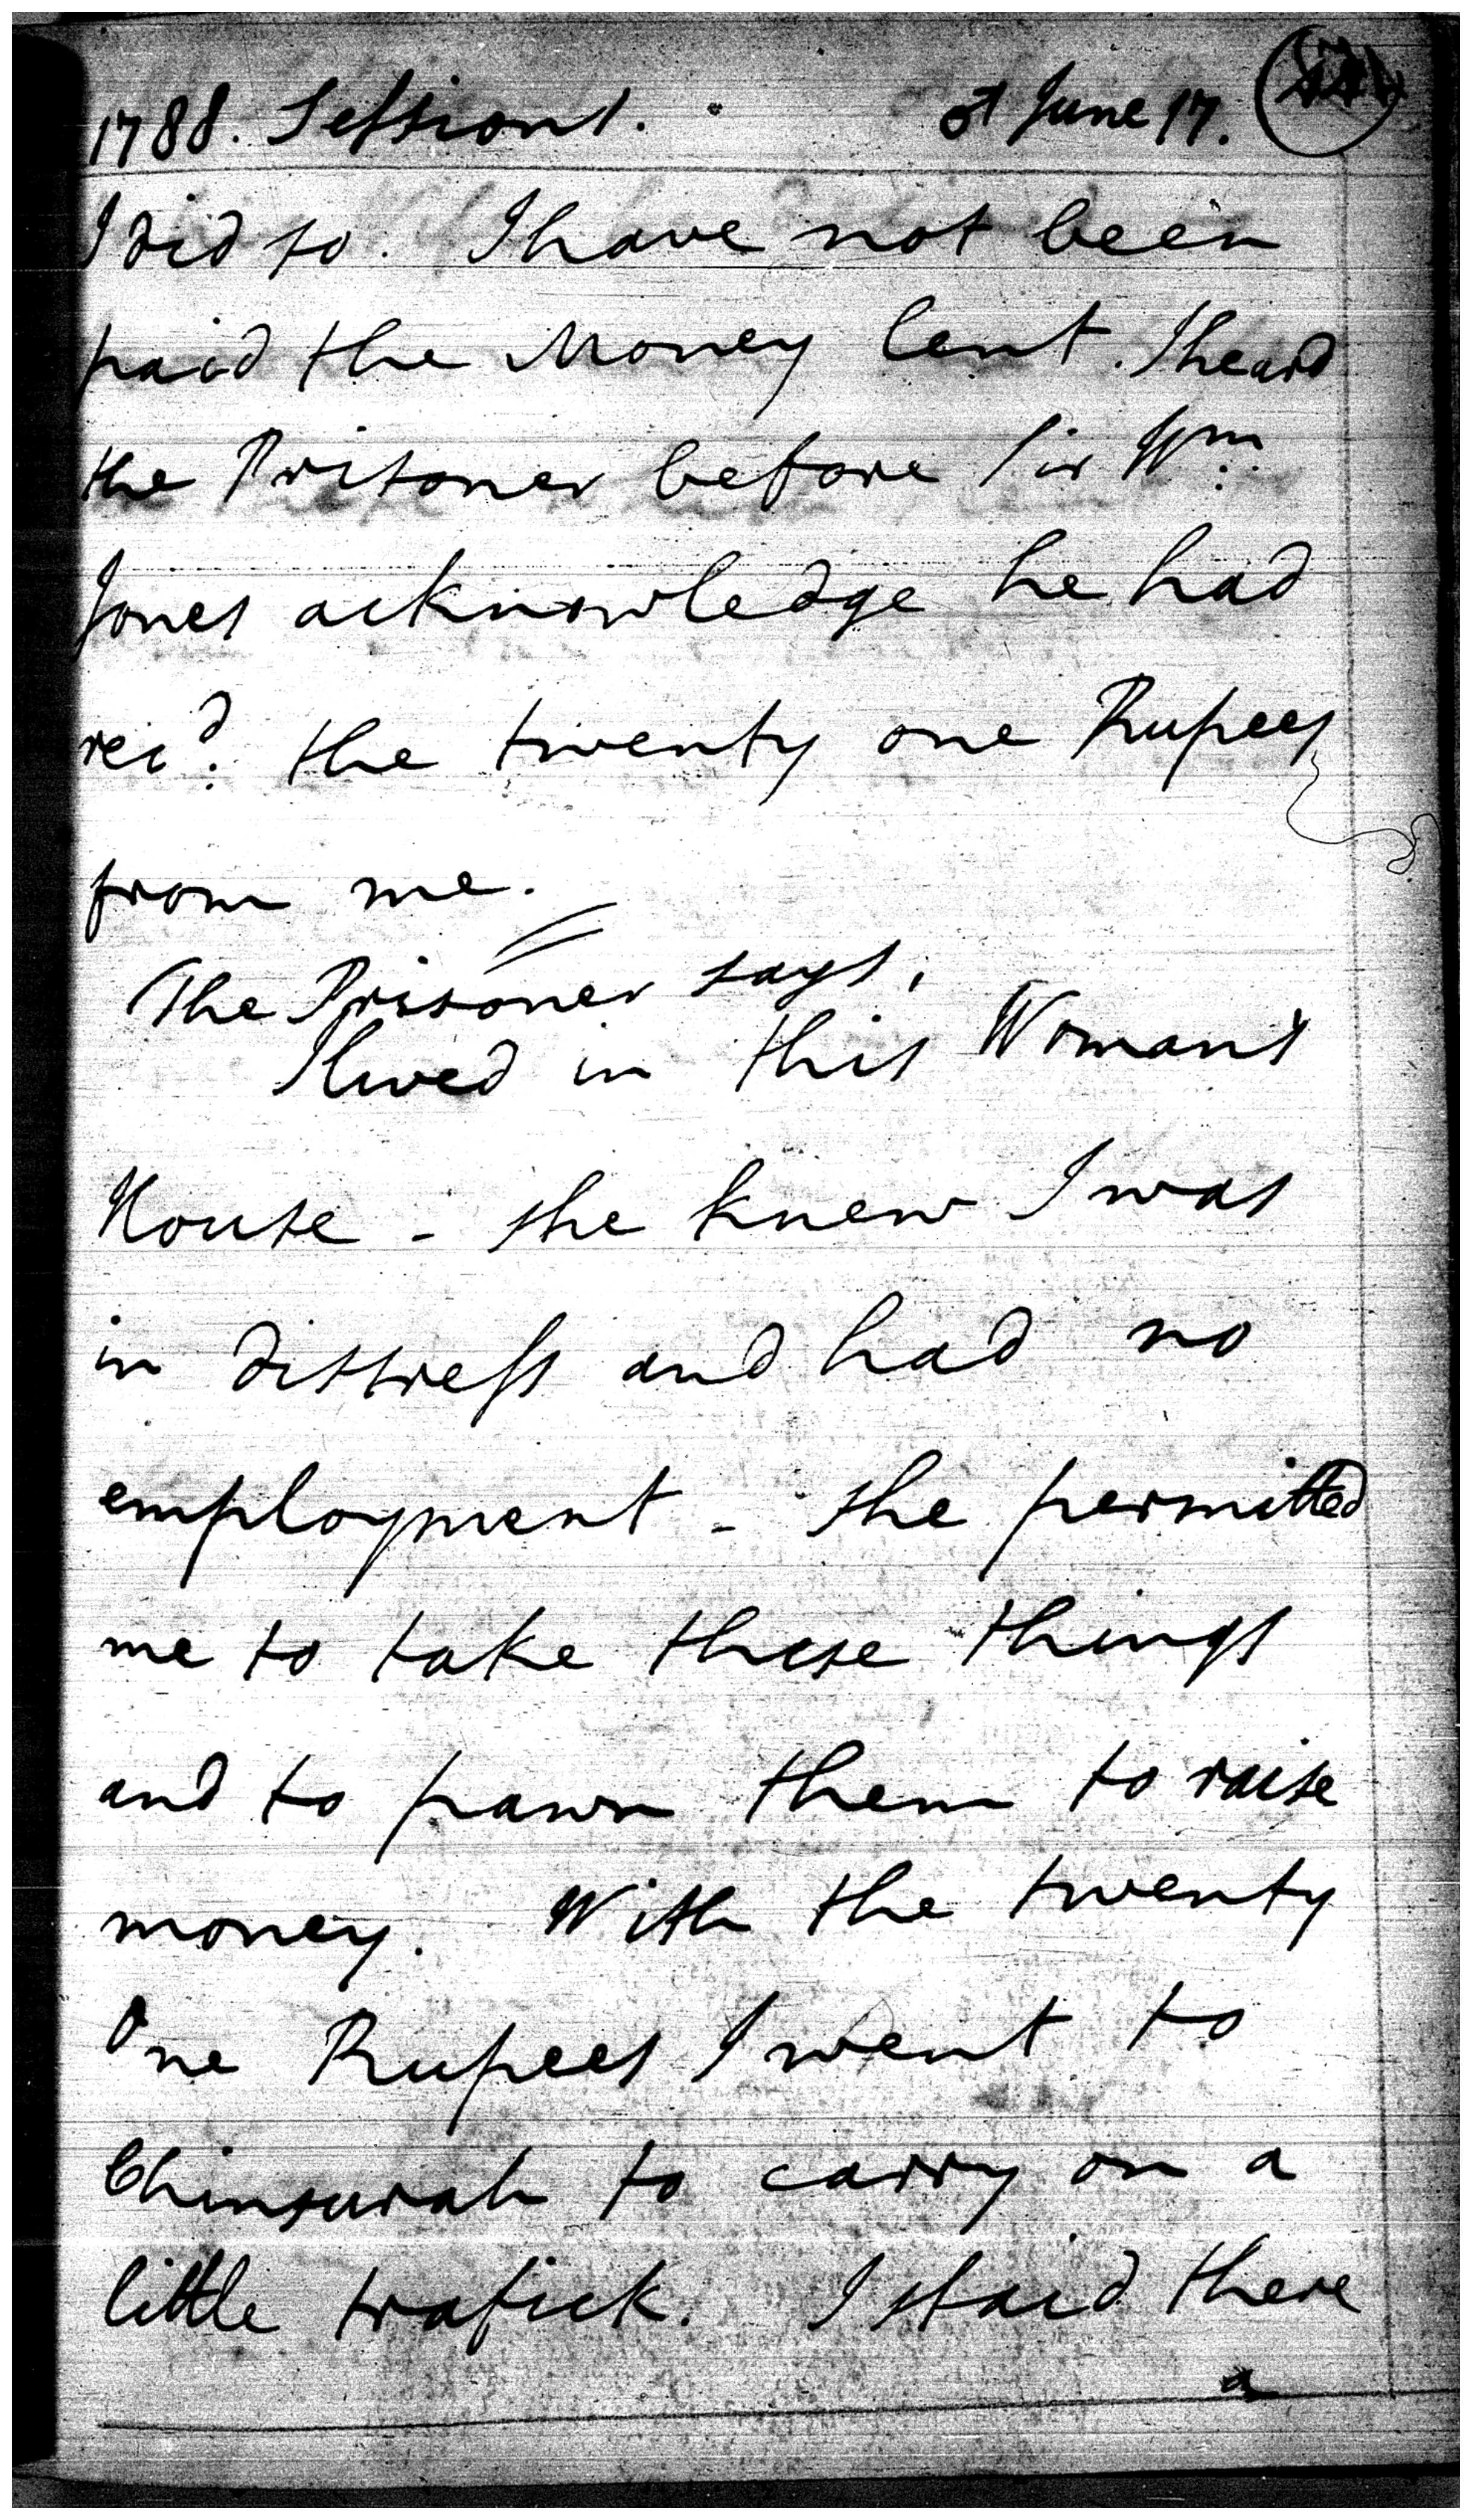 1788. Sessions. June 17.
I did so. I have not been
paid the Money lent. I heard
the Prisoner before Sir Wm.
Jones acknowledge he had
recd. the twenty one Rupees
from me.
The Prisoner says,
I lived in this Womans
House - she knew I was
in distress and had no
employment - she permitted
me to take these things
and to pawn them to raise
money. With the twenty
One Rupees I went to
Chinsurah to carry on a
little trafick. I staid there
a